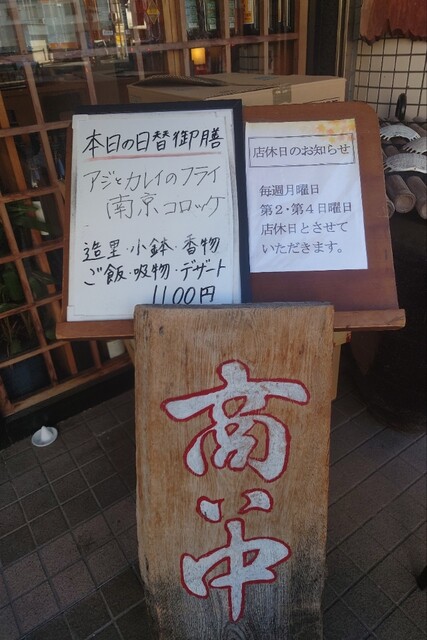 本日の日替御膳
アジとカレイのフライ
南京コロッケ
造里・小鉢・香物
ご飯・吸物・デザート
1100円
店休日のお知らせ
毎週月曜日
第2・第4日曜日
店休日とさせて
いただきます。
商い中